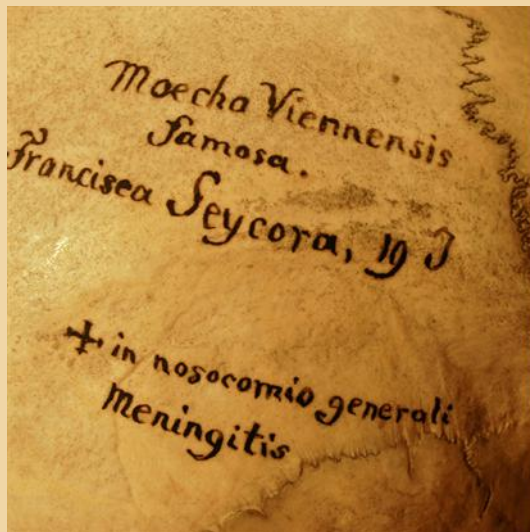 Moecha Viennensis
famosa.
Francisea Seycora, 19 J
✝ in nosocomio generali
Meningitis